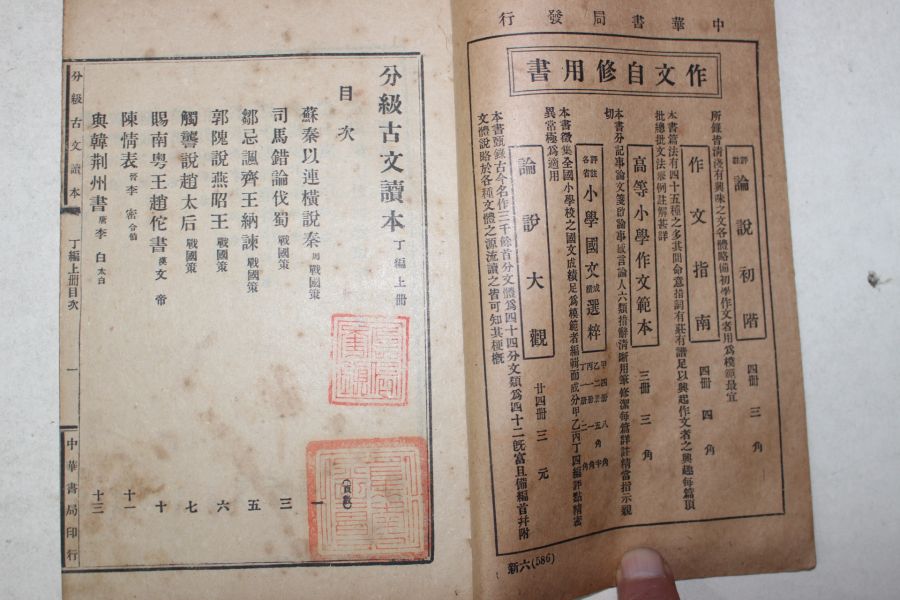 中華書局發行
作文自修用書
評註 論說初階 四冊 三角
所錄皆清淺有興味之文各體略備初學作文者用爲模範最宜
作文指南 四冊 四角
本書篇法有四十五種之多其間命意措詞有莊有諧足以興起作文者之興趣每篇頂
批總批文法義例註解甚詳
高等小學作文範本 三冊 三角
本書分記事論文箋啟論事感言論人六類措辭清晰用筆修潔每篇詳註精當指示親
切
評註各省 小學國文成績選粹
甲四冊八角
本書徵集全國小學校之國文成績足爲模範者編輯而成分甲乙丙丁四編評點精密
異常極爲適用
論說大觀 廿四冊 三元
本書甄錄古今名作三千餘首分文體爲四十四分文類爲四十二旣富且備編首幷附
文體說略於各種文體之源流讀之皆可知其梗槪
新六(586)
分級古文讀本 丁編上冊
目次
(頁數)
蘇秦以連橫說秦 周戰國策 一
司馬錯論伐蜀 戰國策 三
鄒忌諷齊王納諫 戰國策 五
郭隗說燕昭王 戰國策 六
觸讋說趙太后 戰國策 七
賜南粤王趙佗書 漢文帝 十
陳情表 晉李密令伯 十一
與韓荆州書 唐李白太白 十三
分級古文讀本 丁編上冊目次 一 中華書局印行